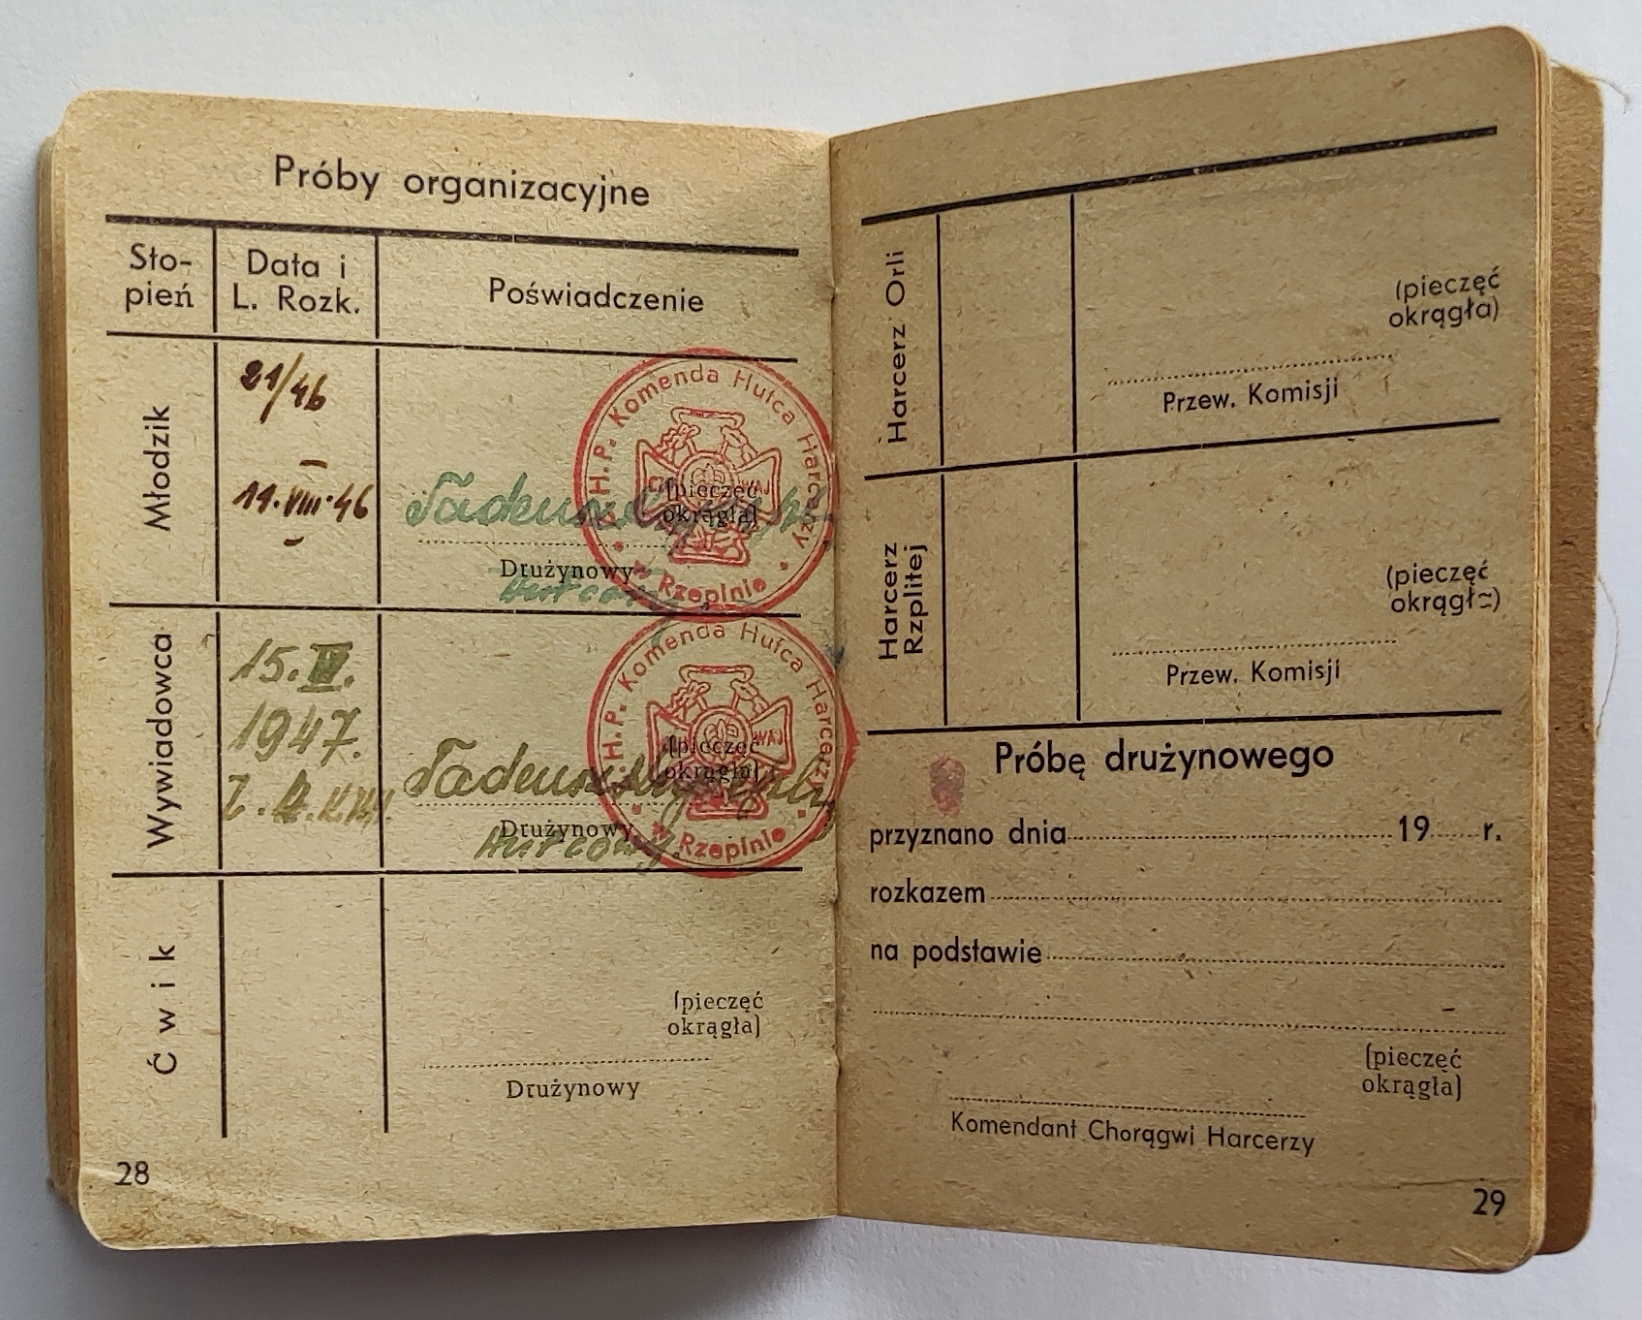 Próby organizacyjne
Sto-
pień
Data i
L. Rozk.
Poświadczenie
Młodzik
21/46
11.VIII.46
Tadeusz
(pieczęć
okrągła)
Drużynowy
Hufcowy
Z.H.P. Komenda Hufca Harcerzy
w Rzepinie
Wywiadowca
15.IV.
1947.
Tadeusz
(pieczęć
okrągła)
Drużynowy
Hufcowy.
Z.H.P. Komenda Hufca Harcerzy
w Rzepinie
Ćwik
(pieczęć
okrągła)
Drużynowy
28
Harcerz Orli
(pieczęć
okrągła)
Przew. Komisji
Harcerz
Rzplitej
(pieczęć
okrągła)
Przew. Komisji
Próbę drużynowego
przyznano dnia 19 r.
rozkazem
na podstawie
(pieczęć
okrągła)
Komendant Chorągwi Harcerzy
29